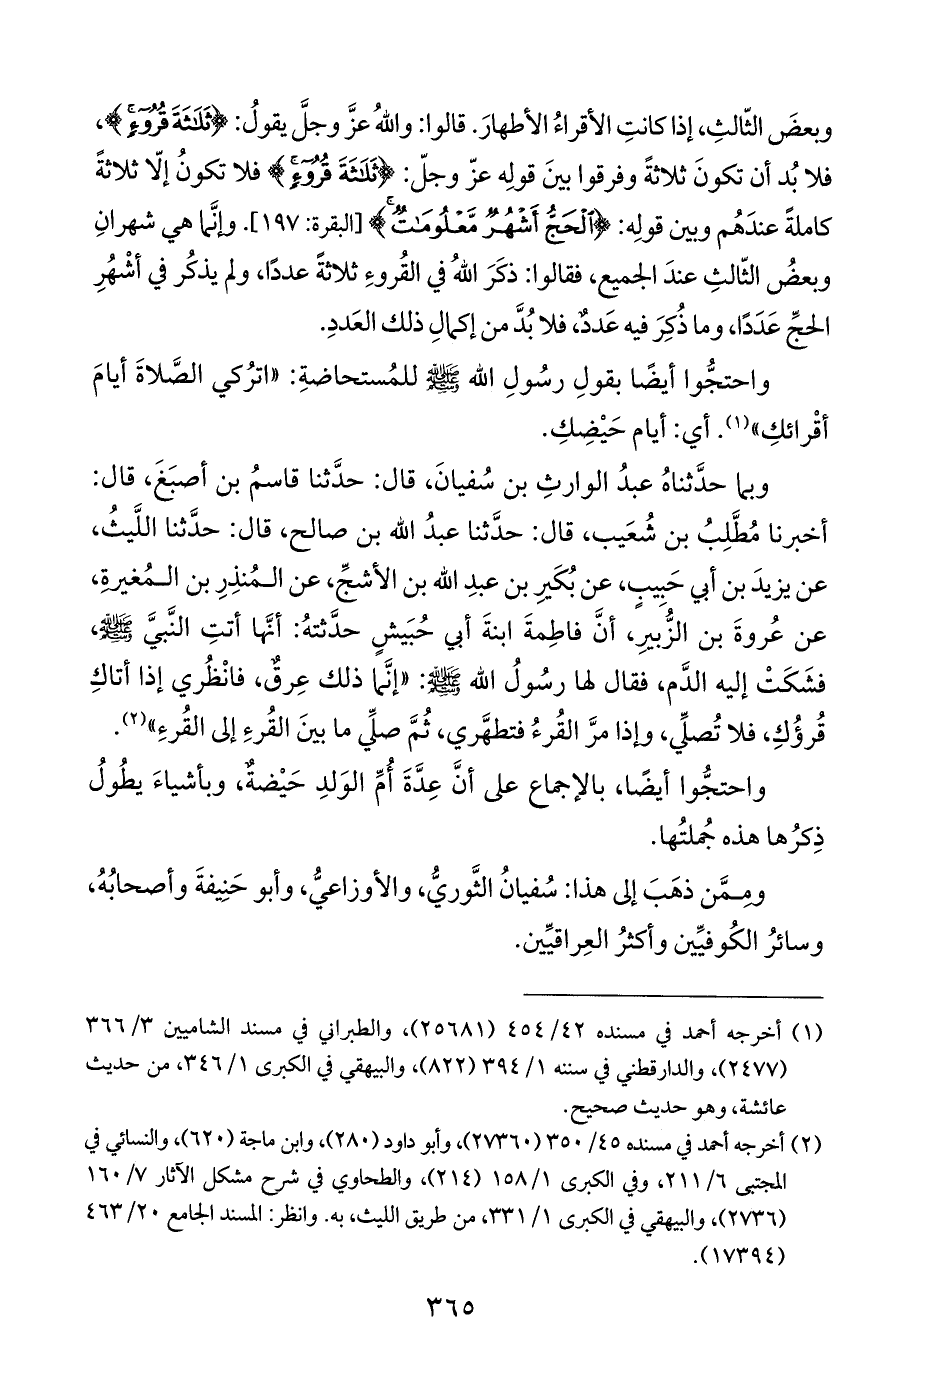 وبعضَ الثّالثِ، إذا كانتِ الأقراءُ الأطهارَ. قالوا: واللهُ عزَّ وجلَّ يقولُ: ﴿ثَلَاثَةَ قُرُوءٍ﴾،
فلا بُد أن تكونَ ثلاثةً وفرقوا بينَ قولِه عزّ وجلّ: ﴿ثَلَاثَةَ قُرُوءٍ﴾ فلا تكونُ إلّا ثلاثةً
كاملةً عندَهُم وبين قولِه: ﴿ٱلْحَجُّ أَشْهُرٌ مَّعْلُومَاتٌ﴾ [البقرة: ١٩٧]. وإنَّما هي شهرانِ
وبعضُ الثّالثِ عندَ الجميع، فقالوا: ذكَرَ اللهُ في القُروءِ ثلاثةً عددًا، ولم يذكُر في أشْهُرِ
الحجِّ عَدَدًا، وما ذُكِرَ فيه عَددٌ، فلا بُدَّ من إكمالِ ذلك العَددِ.
واحتجُّوا أيضًا بقولِ رسُولِ الله ﷺ للمُستحاضةِ: «اترُكي الصَّلاةَ أيامَ
أقْرائكِ»(١). أي: أيام حَيْضِكِ.
وبما حدَّثناهُ عبدُ الوارثِ بن سُفيانَ، قال: حدَّثنا قاسمُ بن أصبَغَ، قال:
أخبرنا مُطَّلِبُ بن شُعَيب، قال: حدَّثنا عبدُ الله بن صالح، قال: حدَّثنا اللَّيثُ،
عن يزيدَ بن أبي حَبِيبٍ، عن بُكَيرِ بن عبدِ الله بن الأشجِّ، عن الـمُنذِرِ بن الـمُغيرةِ،
عن عُروةَ بن الزُّبيرِ، أنَّ فاطِمةَ ابنةَ أبي حُبَيشٍ حدَّثتهُ: أنَّها أتتِ النَّبيَّ ﷺ،
فشَكَتْ إليه الدَّم، فقال لها رسُولُ الله ﷺ: «إنَّما ذلك عِرقٌ، فانْظُري إذا أتاكِ
قُرؤُكِ، فلا تُصلِّي، وإذا مرَّ القُرءُ فتطهَّري، ثُمَّ صلِّي ما بينَ القُرءِ إلى القُرءِ»(٢).
واحتجُّوا أيضًا، بالإجماع على أنَّ عِدَّةَ أُمِّ الوَلدِ حَيْضةٌ، وبأشياءَ يطُولُ
ذِكرُها هذه جُملتُها.
ومِـمَّن ذهَبَ إلى هذا: سُفيانُ الثَّوريُّ، والأوزاعيُّ، وأبو حَنِيفةَ وأصحابُهُ،
وسائرُ الكُوفيِّين وأكثرُ العِراقيِّين.
(١) أخرجه أحمد في مسنده ٤٢/ ٤٥٤ (٢٥٦٨١)، والطبراني في مسند الشاميين ٣/ ٣٦٦
(٢٤٧٧)، والدارقطني في سننه ١/ ٣٩٤ (٨٢٢)، والبيهقي في الكبرى ١/ ٣٤٦، من حديث
عائشة، وهو حديث صحيح.
(٢) أخرجه أحمد في مسنده ٤٥/ ٣٥٠ (٢٧٣٦٠)، وأبو داود (٢٨٠)، وابن ماجة (٦٢٠)، والنسائي في
المجتبى ٦/ ٢١١، وفي الكبرى ١/ ١٥٨ (٢١٤)، والطحاوي في شرح مشكل الآثار ٧/ ١٦٠
(٢٧٣٦)، والبيهقي في الكبرى ١/ ٣٣١، من طريق الليث، به. وانظر: المسند الجامع ٢٠/ ٤٦٣
(١٧٣٩٤).
٣٦٥